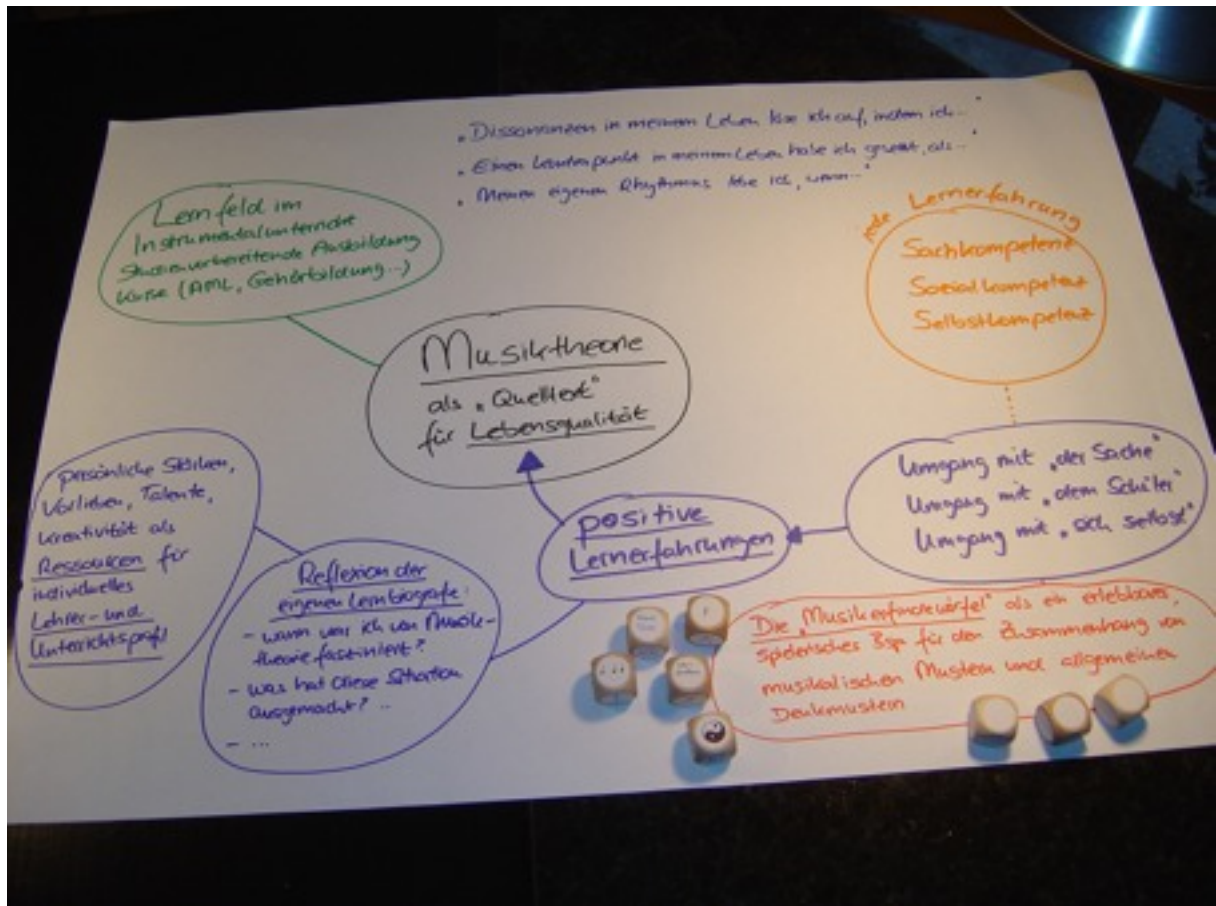 „Dissonanzen in meinem Leben löse ich auf, indem ich..."
„Einen in meinem Leben habe ich gesetzt, als..."
„Meinen eigenen Rhythmus lebe ich, wenn..."
Lernfeld im
Instrumentalunterricht
Studienvorbereitende Ausbildung
Kurse (AML, Gehörbildung...)
jede Lernerfahrung
Sachkompetenz
Sozialkompetenz
Selbstkompetenz
Musiktheorie
als „Quelltext"
für Lebensqualität
persönliche Stärken,
Vorlieben, Talente,
Kreativität als
Ressourcen für
individuelles
Lehrer- und
Unterrichtsprofil
Reflexion der
eigenen Lernbiografie:
- wann war ich von Musik-
theorie fasziniert?
- was hat diese Situation
ausgemacht? ..
- ...
positive
Lernerfahrungen
Umgang mit „der Sache"
Umgang mit „dem Schüler"
Umgang mit „sich selbst"
Die als ein erlebbares,
spielerisches Bsp für den Zusammenhang von
musikalischen Mustern und allgemeinen
Denkmustern